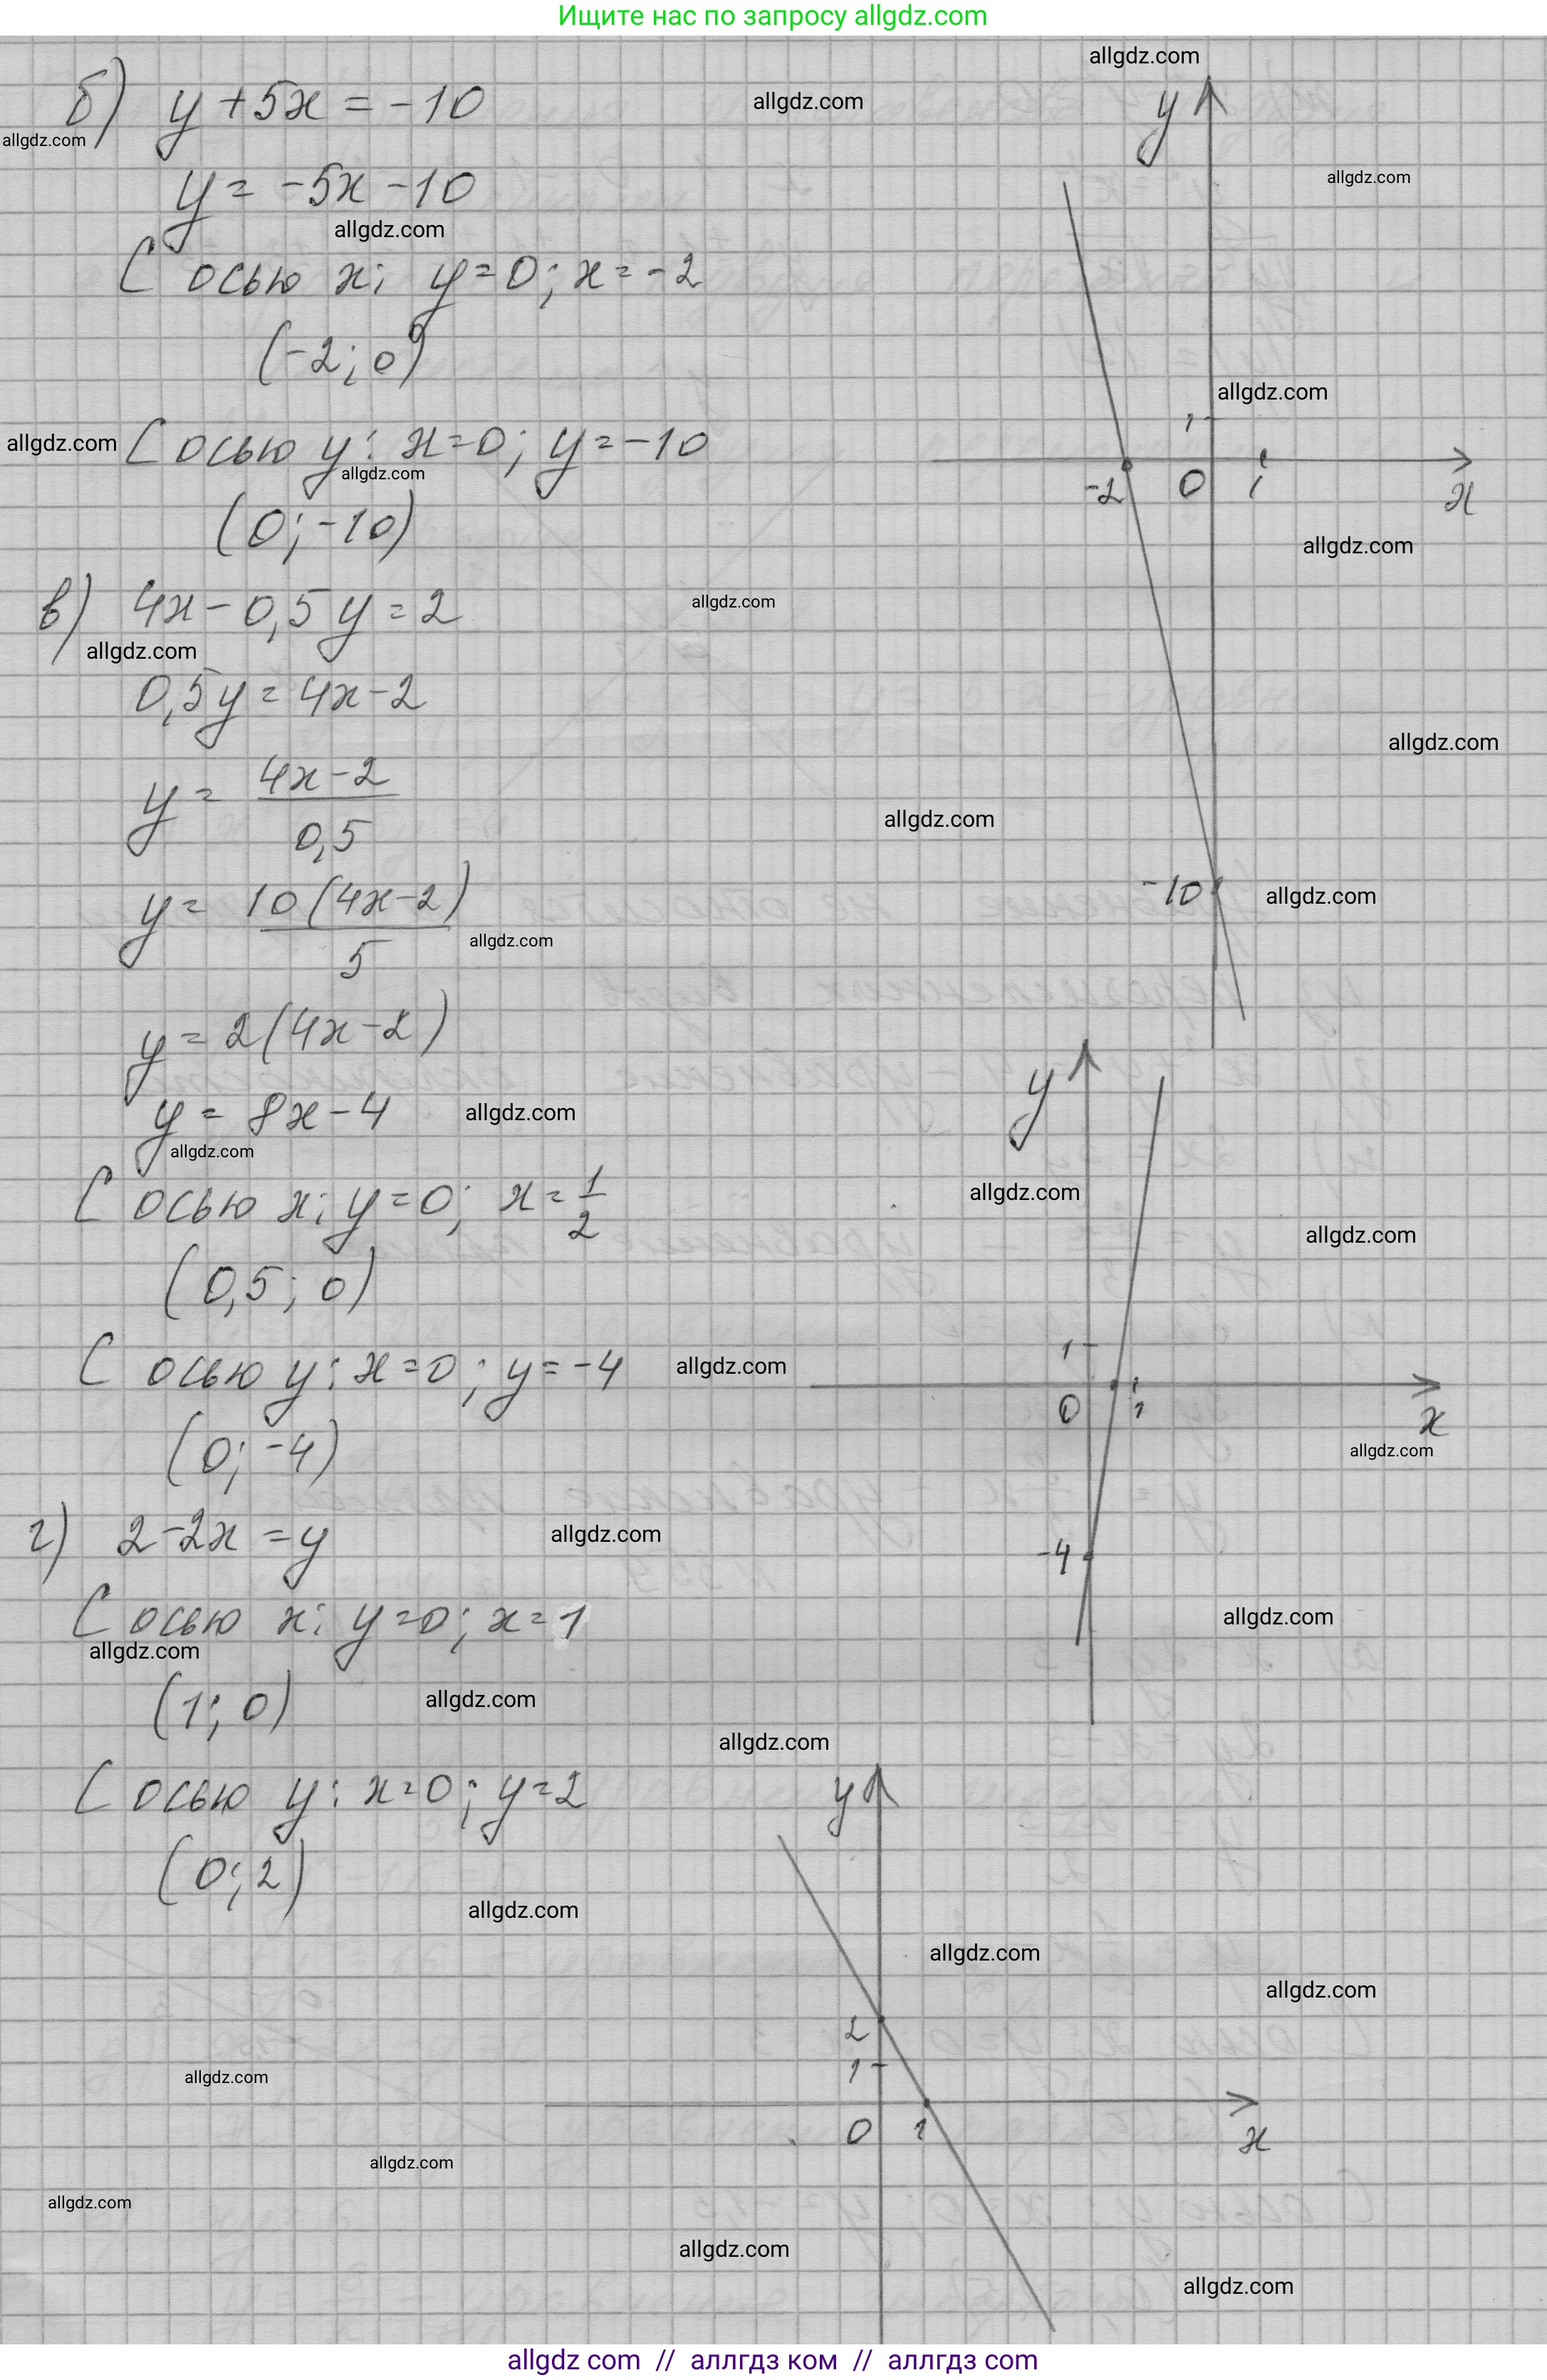 Ищите нас по запросу allgdz.com
allgdz.com
б) y + 5x = -10
allgdz.com
y
allgdz.com
y = -5x - 10
allgdz.com
allgdz.com
С осью x; y = 0; x = -2
(-2; 0)
allgdz.com
1
allgdz.com
С осью y: x = 0; y = -10
allgdz.com
-2 0 1 x
(0; -10)
allgdz.com
в) 4x - 0,5y = 2
allgdz.com
allgdz.com
0,5y = 4x - 2
allgdz.com
y = (4x - 2)/0,5
allgdz.com
y = 10(4x - 2)/5
-10
allgdz.com
allgdz.com
y = 2(4x - 2)
y
y = 8x - 4
allgdz.com
allgdz.com
С осью x; y = 0; x = 1/2
allgdz.com
allgdz.com
(0,5; 0)
С осью y: x = 0; y = -4
allgdz.com
1
0 1 x
(0; -4)
allgdz.com
г) 2 - 2x = y
allgdz.com
-4
С осью x: y = 0; x = 1
allgdz.com
allgdz.com
(1; 0)
allgdz.com
allgdz.com
С осью y: x = 0; y = 2
y
(0; 2)
allgdz.com
allgdz.com
allgdz.com
2
1
allgdz.com
0 1 x
allgdz.com
allgdz.com
allgdz.com
allgdz.com
allgdz com // аллгдз ком // аллгдз com